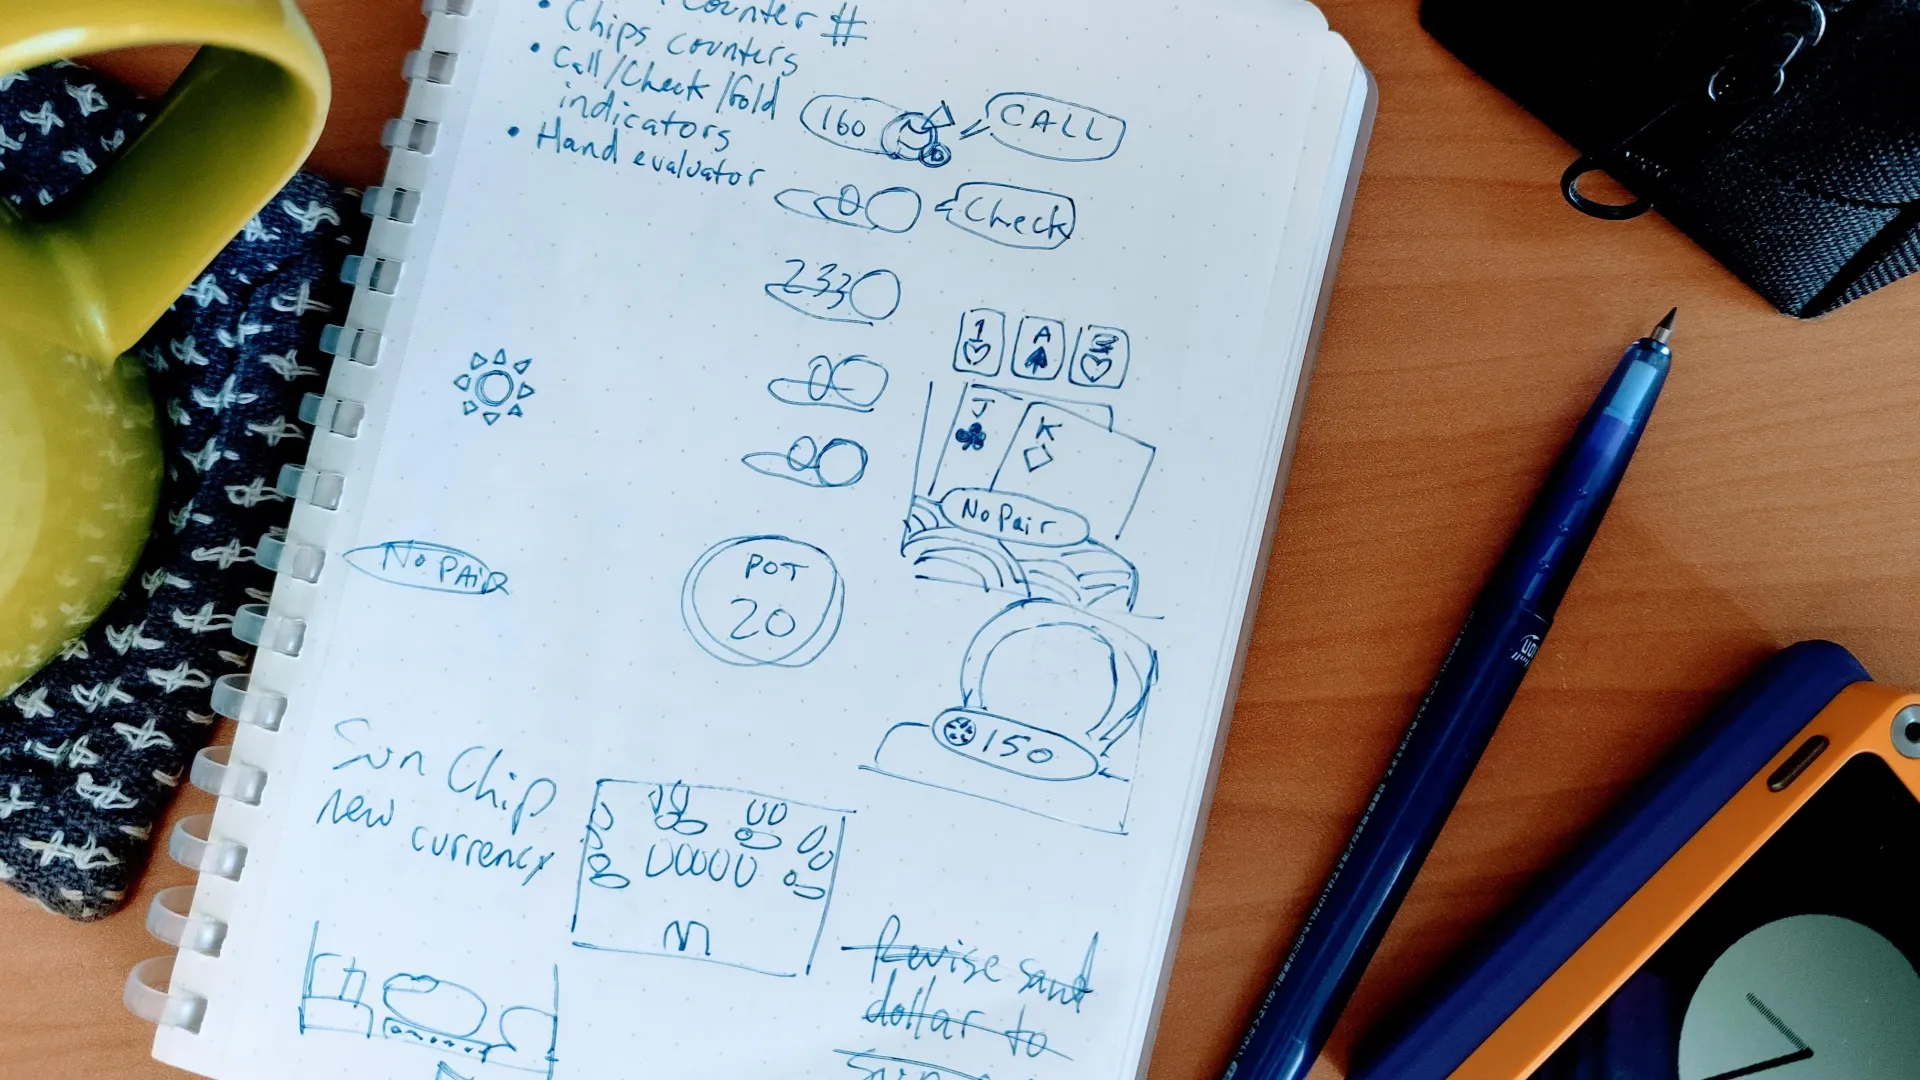 counter #
• Chips counters
• Call/Check/Fold
indicators
• Hand evaluator
160
CALL
0
Check
233
0
0
1
A
J
K
No Pair
No PAiR
POT
20
150
Sun Chip
new currency
Revise sand
dollar to